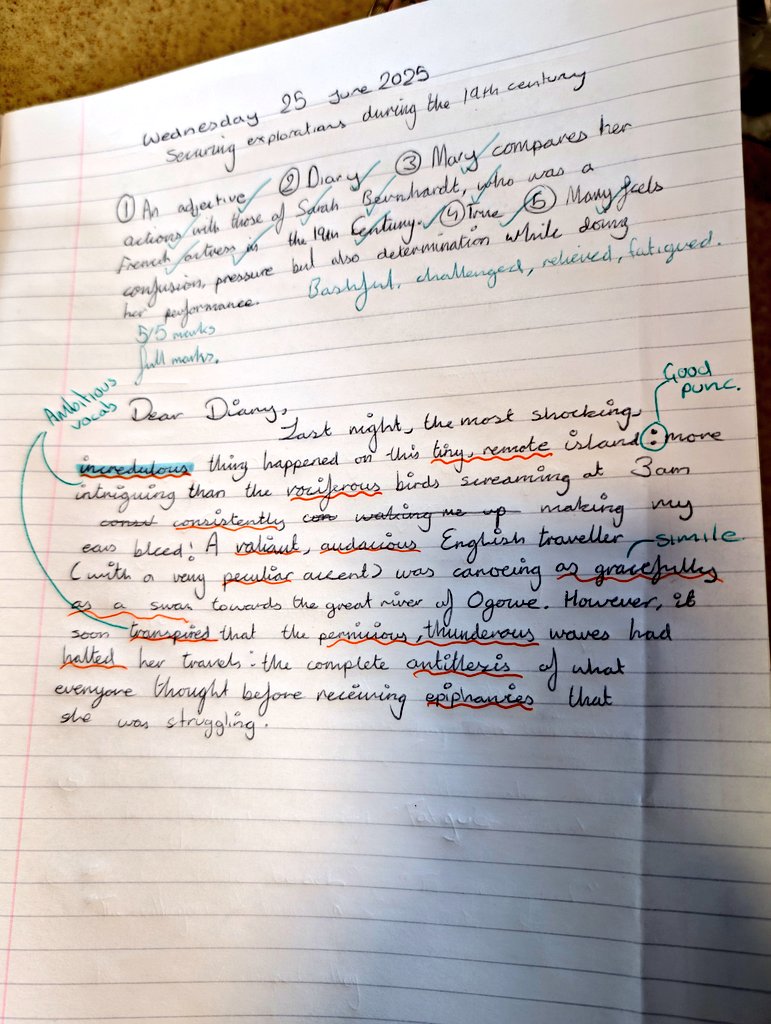 Wednesday 25 June 2025
Securing explorations during the 19th century
① An adjective ② Diary ③ Mary compares her
actions with those of Sarah Bernhardt, who was a
French actress in the 19th Century. ④ True ⑤ Mary feels
confusion, pressure but also determination while doing
her performance. Bashful, challenged, relieved, fatigued.
5/5 marks
full marks.
Good
punc.
Ambitious
vocab
Dear Diary,
Last night, the most shocking,
incredulous thing happened on this tiny, remote island: more
intriguing than the vociferous birds screaming at 3am
const consistently con waking me up making my
ears bleed! A valiant, audacious English traveller
simile
(with a very peculiar accent) was canoeing as gracefully
as a swan towards the great river of Ogowe. However, it
soon transpired that the pernicious, thunderous waves had
halted her travels: the complete antillexis of what
everyone thought before receiving epiphanies that
she was struggling.